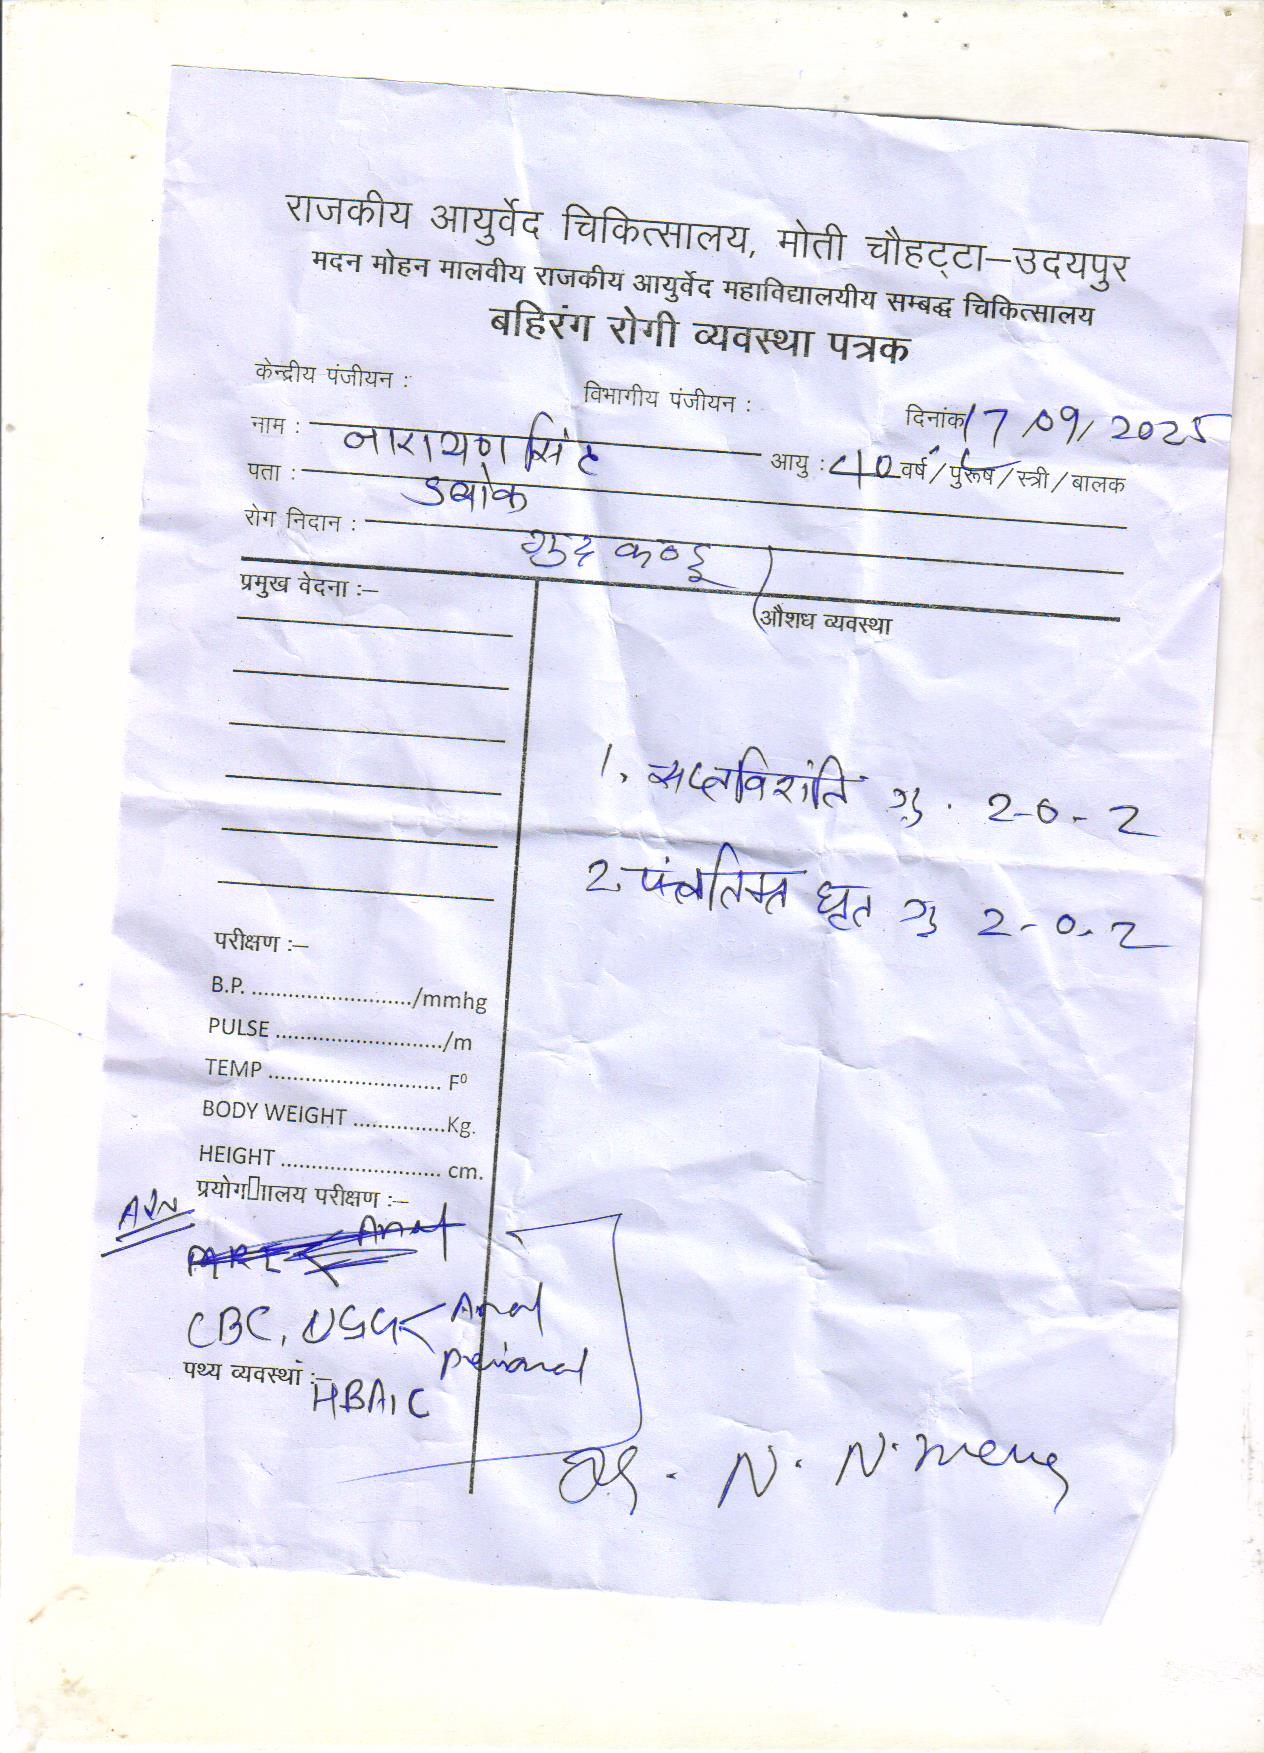 राजकीय आयुर्वेद चिकित्सालय, मोती चौहट्टा–उदयपुर
मदन मोहन मालवीय राजकीय आयुर्वेद महाविद्यालयीय सम्बद्ध चिकित्सालय
बहिरंग रोगी व्यवस्था पत्रक
केन्द्रीय पंजीयन : विभागीय पंजीयन : दिनांक 17/09/2025
नाम : नारायण सिंह आयु : 40 वर्ष/पुरूष/स्त्री/बालक
पता : डबोक
रोग निदान : गुद कण्डू
प्रमुख वेदना :– औशध व्यवस्था
1. सप्तविशंति गु. 2-0-2
2. पंचतिक्त घृत गु 2-0-2
परीक्षण :–
B.P. ........................../mmhg
PULSE ............................/m
TEMP ............................. F⁰
BODY WEIGHT ...............Kg.
HEIGHT ........................... cm.
प्रयोग□ाालय परीक्षण :–
Adv
Anal
CBC, USG < Anal
perianal
पथ्य व्यवस्था :–
HBA1C
Dr. N. N. Meena